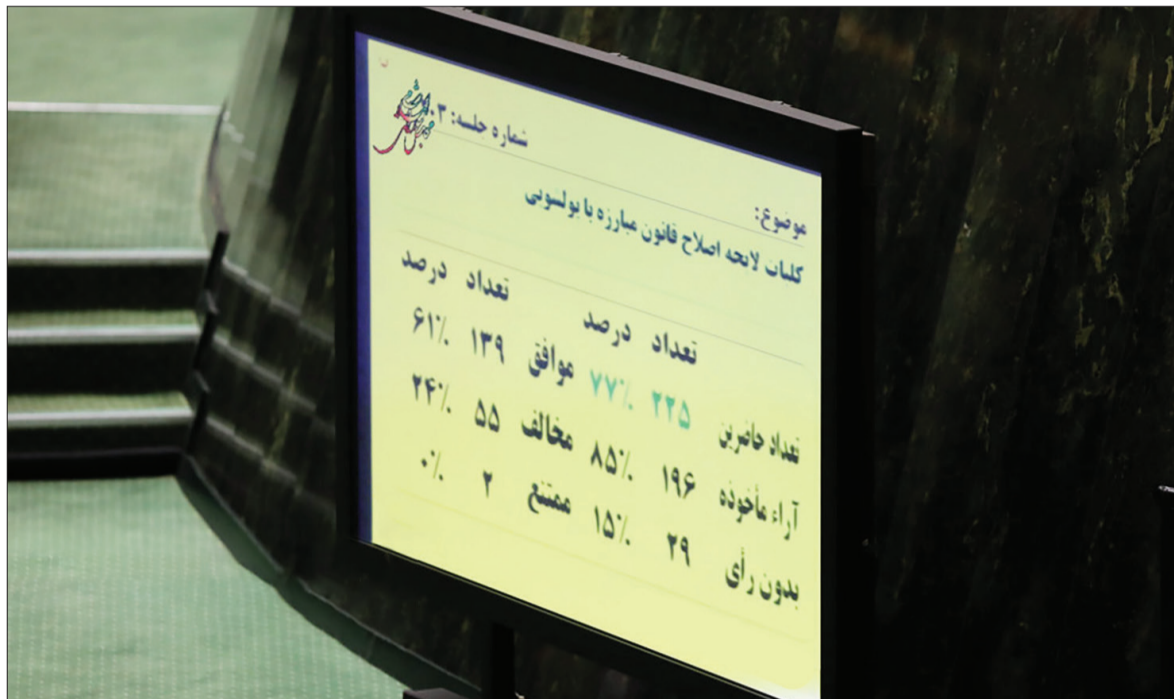 شماره جلسه: ۳
موضوع:
کلیات لایحه اصلاح قانون مبارزه با پولشویی
تعداد درصد تعداد درصد
تعداد حاضرین ۲۲۵ ۷۷٪ موافق ۱۳۹ ۶۱٪
آراء مأخوذه ۱۹۶ ۸۵٪ مخالف ۵۵ ۲۴٪
بدون رأی ۲۹ ۱۵٪ ممتنع ۲ ۰٪